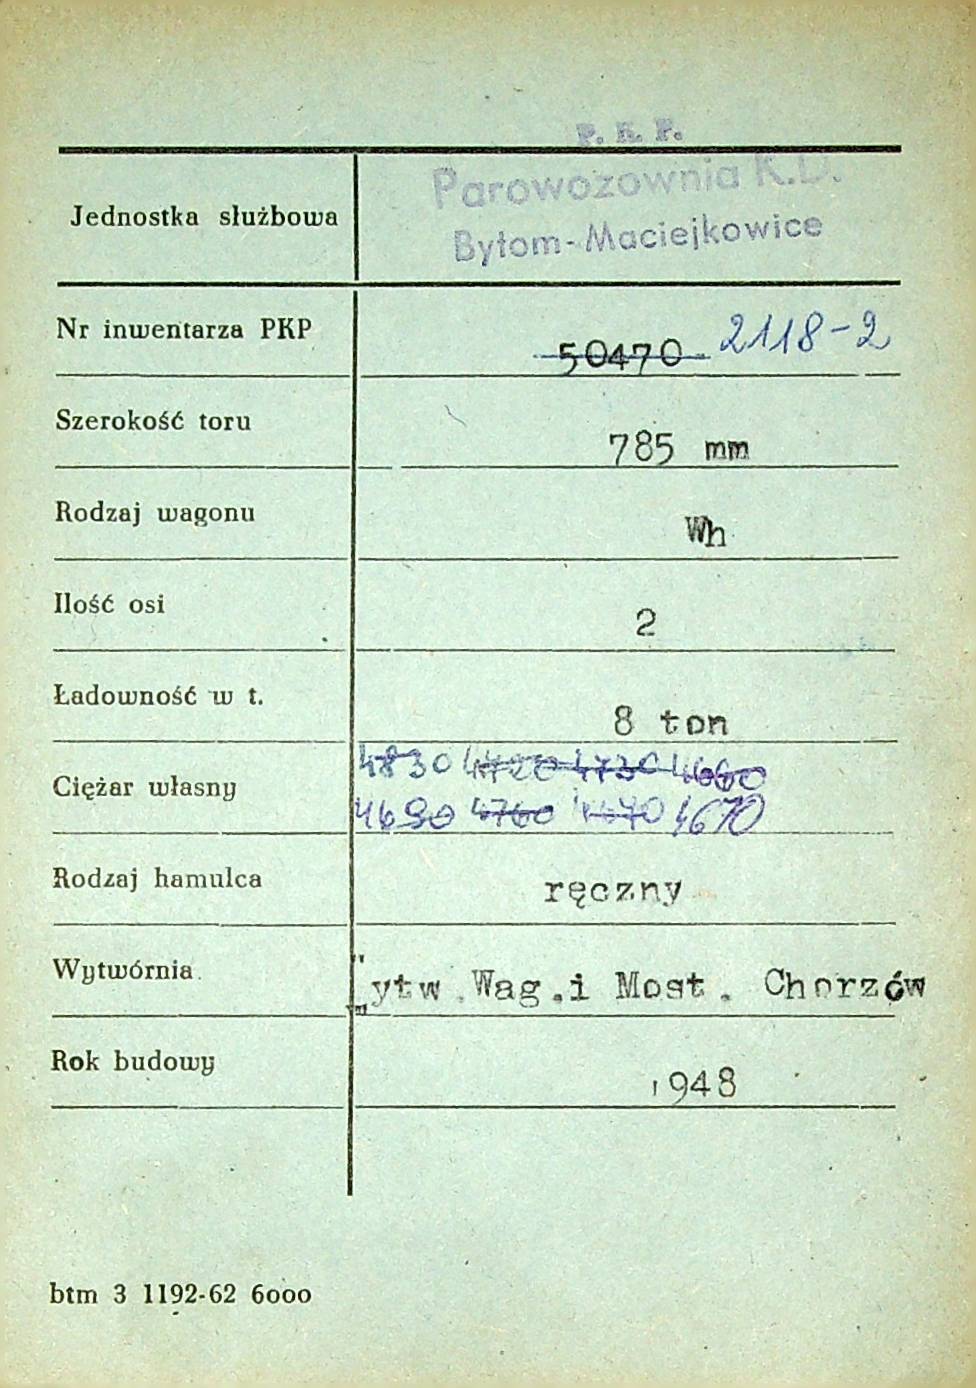 P. K. P.
Parowozownia K.D.
Bytom-Maciejkowice
Jednostka służbowa
Nr inwentarza PKP 50470 2118-2
Szerokość toru 785 mm
Rodzaj wagonu Wh
Ilość osi 2
Ładowność w t. 8 ton
4830 4720 4730 4660
Ciężar własny
4690 4760 4670
Rodzaj hamulca ręczny
Wytwórnia Wytw.Wag.i Most. Chorzów
Rok budowy 1948
btm 3 1192-62 6000